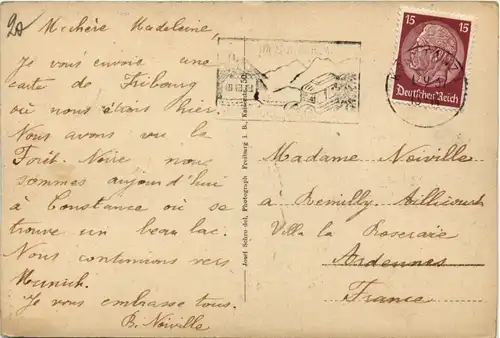 20
Ma chère Madeleine,
Je vous envois une
carte de Fribourg
où nous étions hier.
Nous avons vu la
Forêt-Noire nous
sommes aujourd'hui
à Constance où se
trouve un beau lac.
Nous continuons vers
Munich.
Je vous embrasse tous.
B. Noiville
Josef Schrodel, Photograph Freiburg i. B., Kaiserstr. 50
15 15
Deutsches Reich
Madame Noiville
à Remilly Aillicourt
Villa la Roseraie
Ardennes
France